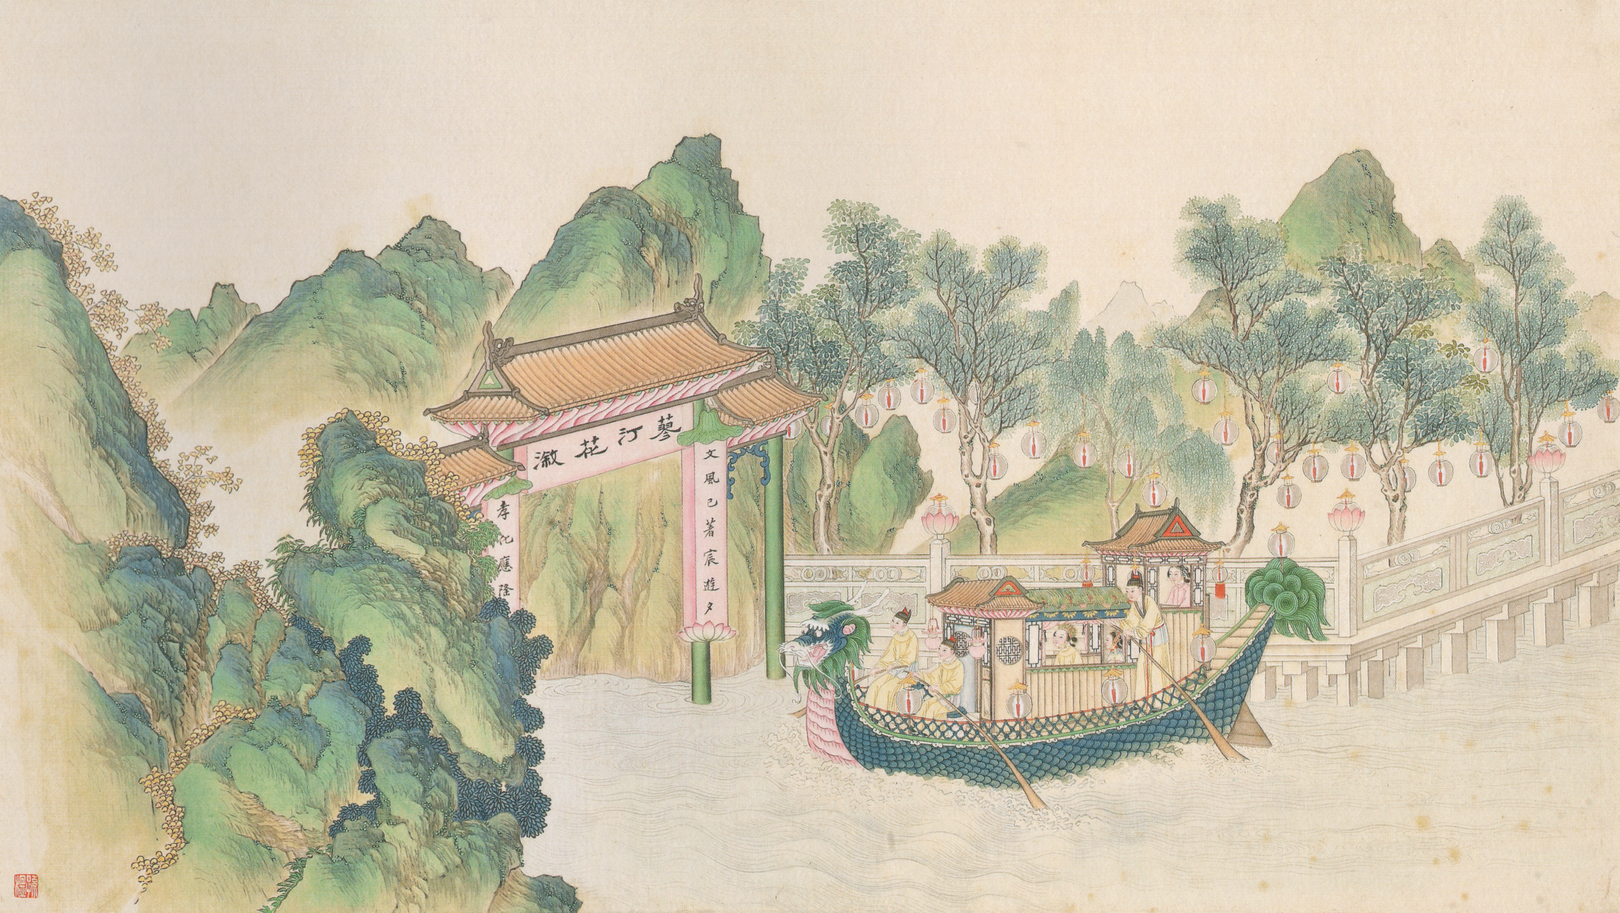 蓼汀花溆
文風已著宸遊夕
孝化應隆